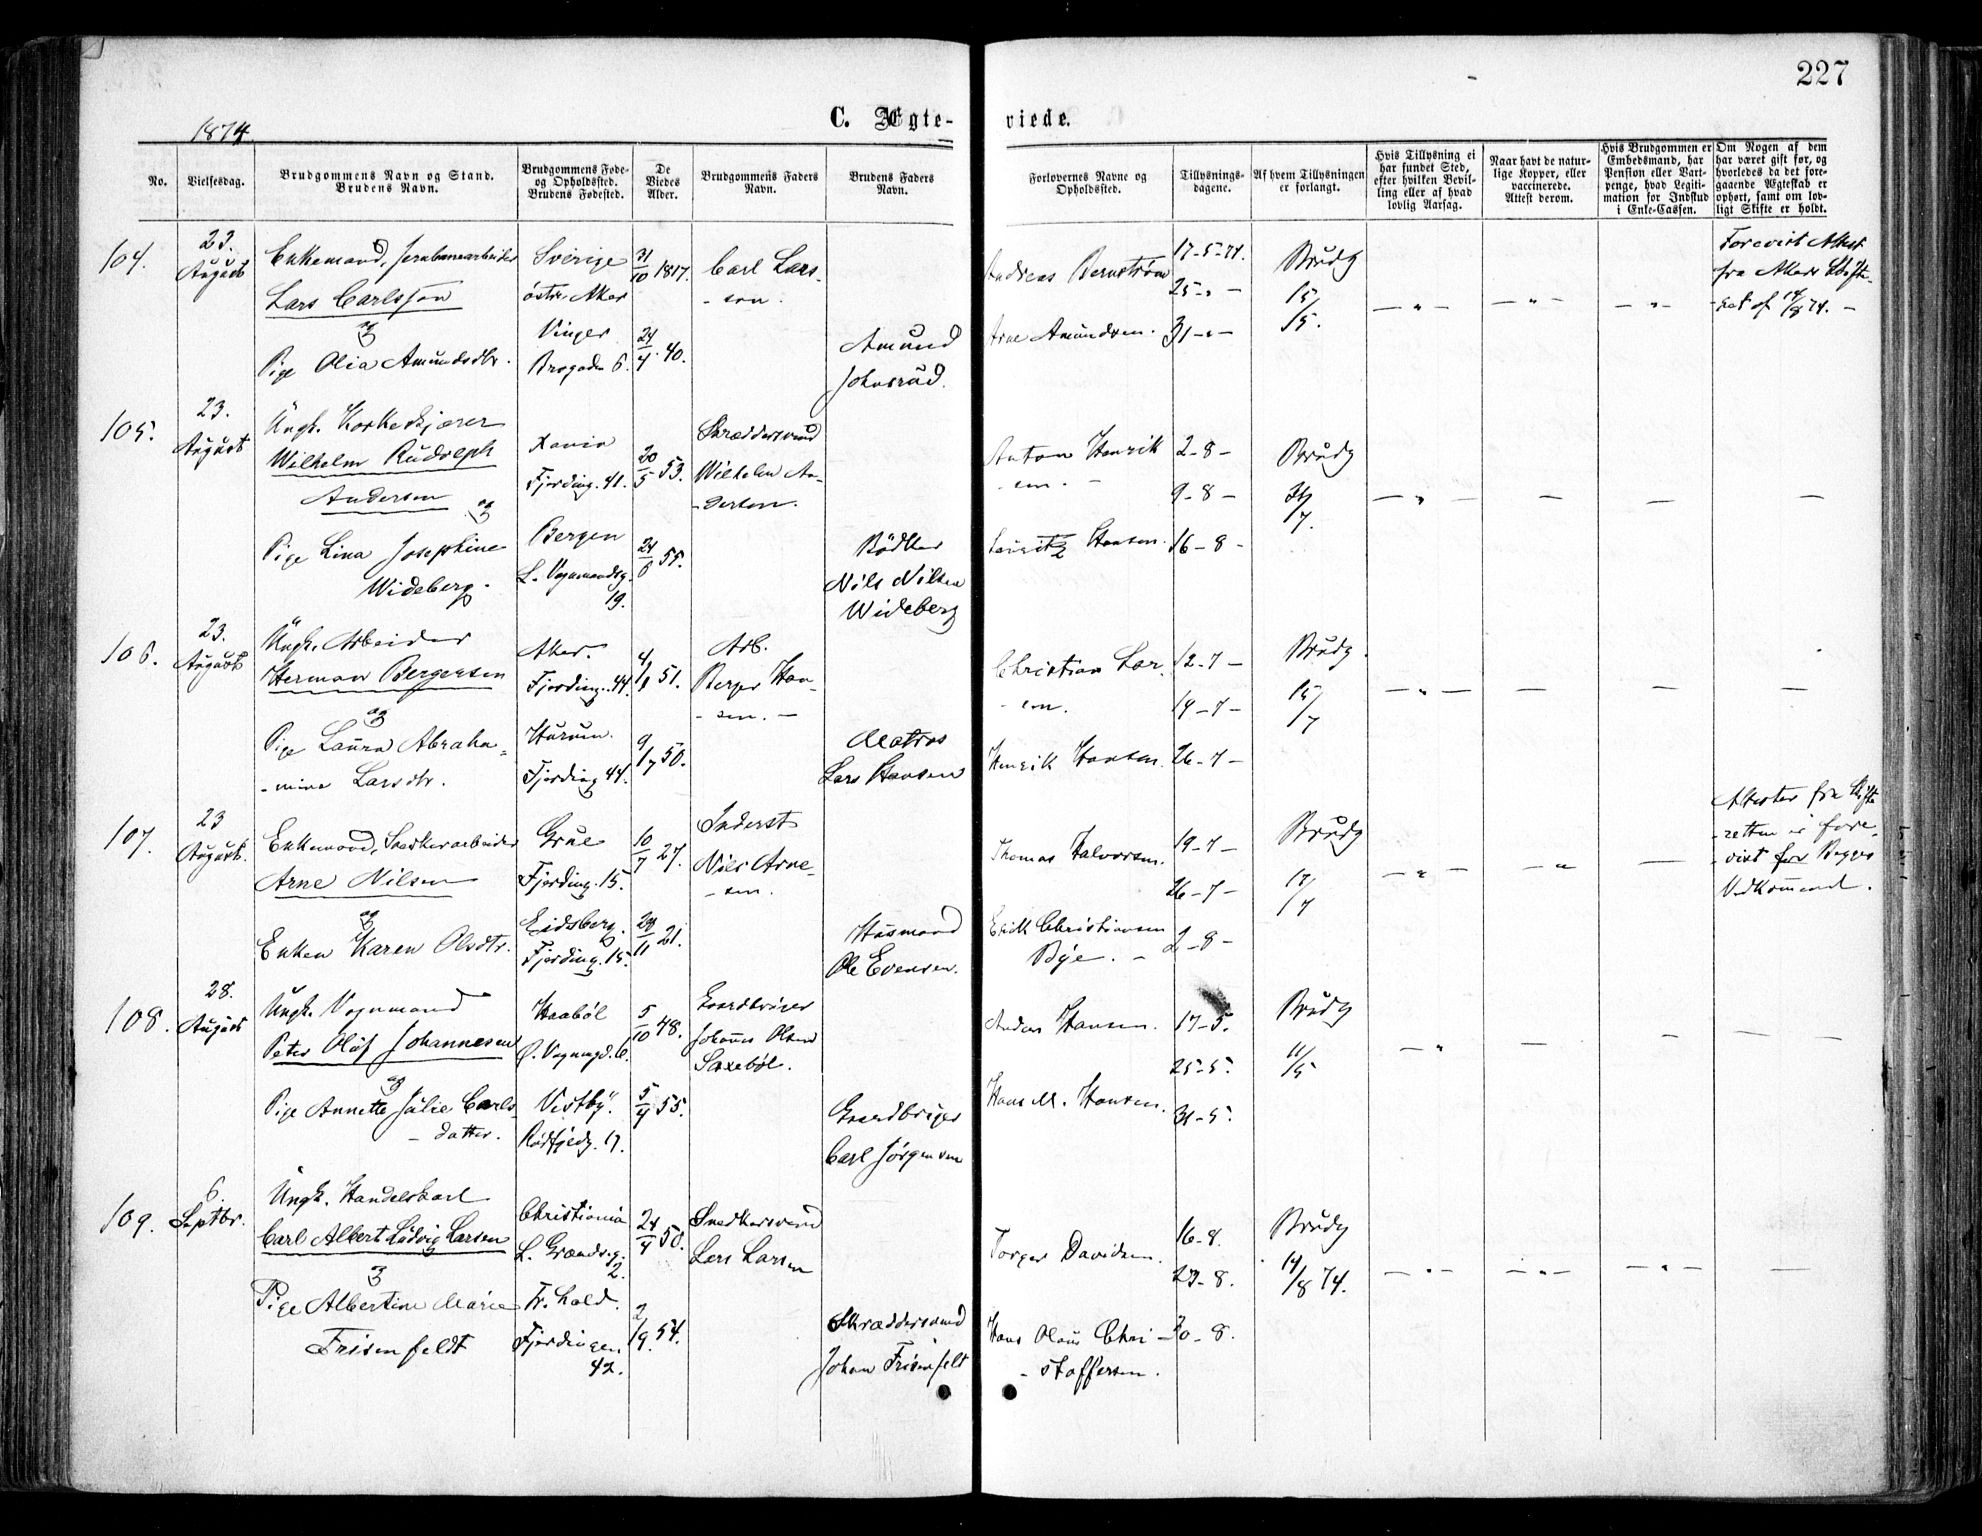 227
C. Ægte-
viede.
1874
No.
Vielsesdag.
Brudgommens Navn og Stand.
Brudens Navn.
Brudgommens Føde-
og Opholdssted.
Brudens Fødested.
De
Viedes
Alder.
Brudgommens Faders
Navn.
Brudens Faders
Navn.
Forlovernes Navne og
Opholdssted.
Tillysnings-
dagene.
Af hvem Tillysningen
er forlangt.
Hvis Tillysning ei
har fundet Sted,
efter hvilken Bevil-
ling eller af hvad
lovlig Aarsag.
Naar havt de natur-
lige Kopper, eller
vaccinerede.
Attest derom.
Hvis Brudgommen er
Embedsmand, har
Pension eller Vart-
penge, hvad Legiti-
mation for Indskud
i Enke-Cassen.
Om Nogen af dem
har været gift før, og
hvorledes da det fore-
gaaende Ægteskab er
ophørt, samt om lov-
ligt Skifte er holdt.
104.
23.
August
Enkemand, Jernbanearbeider
Lars Carlsson
og
Pige Olia Amundsdtr.
Sverige
østr. Aker
Vinger
Brogaden 6.
31/10 1817.
24/4 40.
Carl Lars-
- son.
Amund
Johnsrud.
Andreas Bernstrøm
Arne Amundsen.
17-5-74.
25-"-
31-"-
Brudg
15/5.
- " -
- " -
- " -
Forevist Attest
fra Akers Skifte-
ret af 14/8 74. -
105.
23.
August
Ungk. Korkeskjærer
Wilhelm Rudolph
Andersen og
Pige Lina Josephine
Wideberg.
Xania
Fjerding. 41.
Bergen
L. Vognmandsg.
19.
20/5 53.
24/6 55.
Skræddersvend
Wilhelm An-
- dersen.
Bødker
Nils Nilsen
Wideberg
Anton Henrik
- sen. -
Lauritz Hansen.
2-8-
9-8-
16-8-
Brudg
/7.
- " -
-
-
-
106.
23.
August
Ungk. Arbeider
Herman Bergersen
og
Pige Laura Abraha-
- mine Larsdtr.
Aker.
Fjerding. 44.
Hurum.
Fjerding 44.
51.
9/7 50.
Arb.
Berger Han-
- sen. -
Matros
Lars Hansen
Christian Lar-
- sen.
Henrik Hansen.
12-7-
19-7-
26-7-
Brudg.
15/7
- " -
-
-
-
107.
23
August.
Enkemand, Snedkerarbeider
Arne Nilsen
og
Enken Karen Olsdtr.
Grue
Fjerding. 15.
Eidsberg.
Fjerding. 15.
10/7 27.
/11 21.
Inderst
Nils Arne-
- sen.
Husmand
Ole Evensen.
Thomas Halvorsen.
Erik Christiansen
Bye. -
19-7-
26-7-
2-8-
Brudg
17/7
- " -
- " -
-
Attester fra Skifte
- retten er fore-
- vist for Begges
Vedkommend.
108.
28.
August
Ungk. Vognmand
Peter Oluf Johannesen
og
Pige Annette Julie Carls-
- datter.
Haabøl
Ø. Vognmgd. 6.
Vestby.
Rødfyldg. 17.
5/10 48.
5/4 55.
Gaardbruger
Johannes Olsen
Saxebøl.
Gaardbruger
Carl Jørgensen
Anders Hansen.
Hans M. Hansen.
17-5.
25-5.
31-5.
Brudg
11/5
- " -
-
-
-
109.
6.
Septbr.
Ungk. Handelskarl
Carl Albert Ludvig Larsen
og
Pige Albertine Marie
Frisenfeldt
Christiania
L. Grændseg.
2.
Fr. hald.
Fjerdingen
42.
24/4 50.
2/9. 54.
Snedkersvend
Lars Larsen
Skræddersvend
Johan Frisenfelt
Torger Davidsen.
Hans Olaus Chri-
- stoffersen.
16-8.
23-8.
30-8.
Brudg
14/8 74.
- " -
- " -
- " -
-